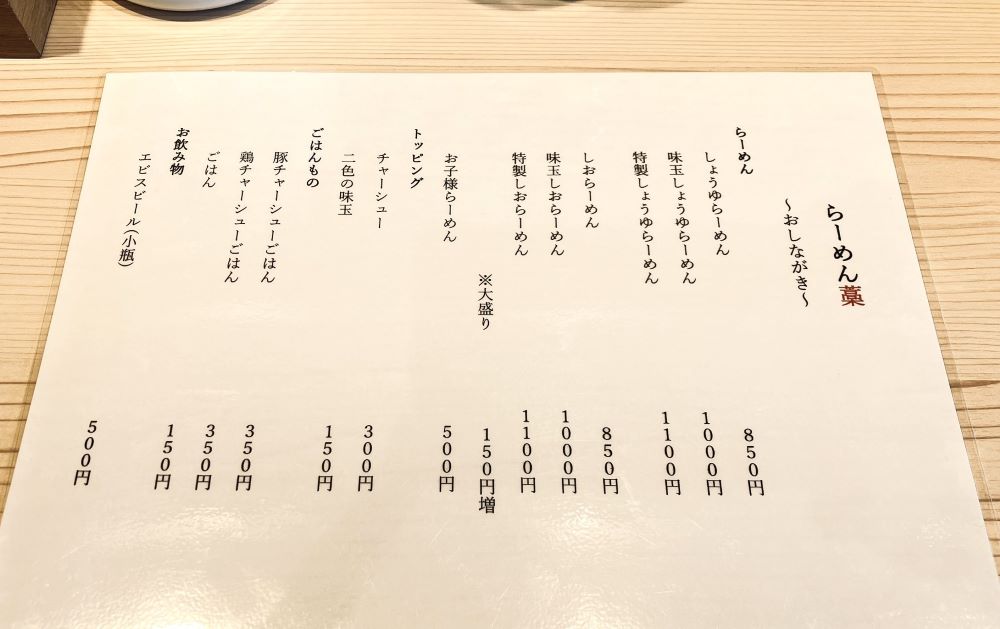 らーめん藁
〜おしながき〜
らーめん
しょうゆらーめん 850円
味玉しょうゆらーめん 1000円
特製しょうゆらーめん 1100円
しおらーめん 850円
味玉しおらーめん 1000円
特製しおらーめん 1100円
※大盛り 150円増
お子様らーめん 500円
トッピング
チャーシュー 300円
二色の味玉 150円
ごはんもの
豚チャーシューごはん 350円
鶏チャーシューごはん 350円
ごはん 150円
お飲み物
エビスビール(小瓶) 500円